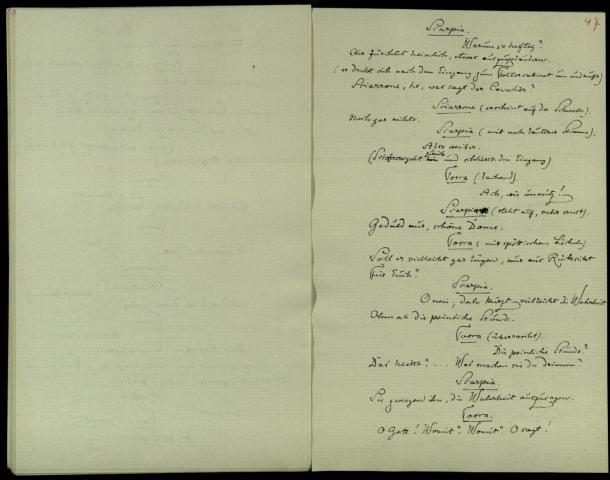 47.
Scarpia.
Warum so heftig?
Ihr fürchtet heimlich, etwas auszuplaudern.
(er dreht sich nach dem Eingang zum Foltercabinet um und ruft)
Sciarrone, he, was sagt der Cavalier?
Sciarrone (erscheint auf der Schwelle).
Noch gar nichts.
Scarpia (mit noch lauterer Stimme).
Also weiter.
(Sciarrone geht und schliesst den Eingang)
Tosca (lachend).
Ach, wie unnütz!
Scarpia (steht auf, sehr ernst).
Geduld nur, schöne Dame.
Tosca (mit spöttischem Lächeln).
Soll er vielleicht gar lügen, nur aus Rücksicht
für Euch?
Scarpia.
O nein, doch kürzt vielleicht die Wahrheit
Ihm ab die peinliche Stunde.
Tosca (überrascht).
Die peinliche Stunde?
Das heisst? . . . Was machen sie da drinnen?
Scarpia.
Sie zwingen ihn, die Wahrheit auszusagen.
Tosca.
O Gott! Womit? Womit? O sagt!